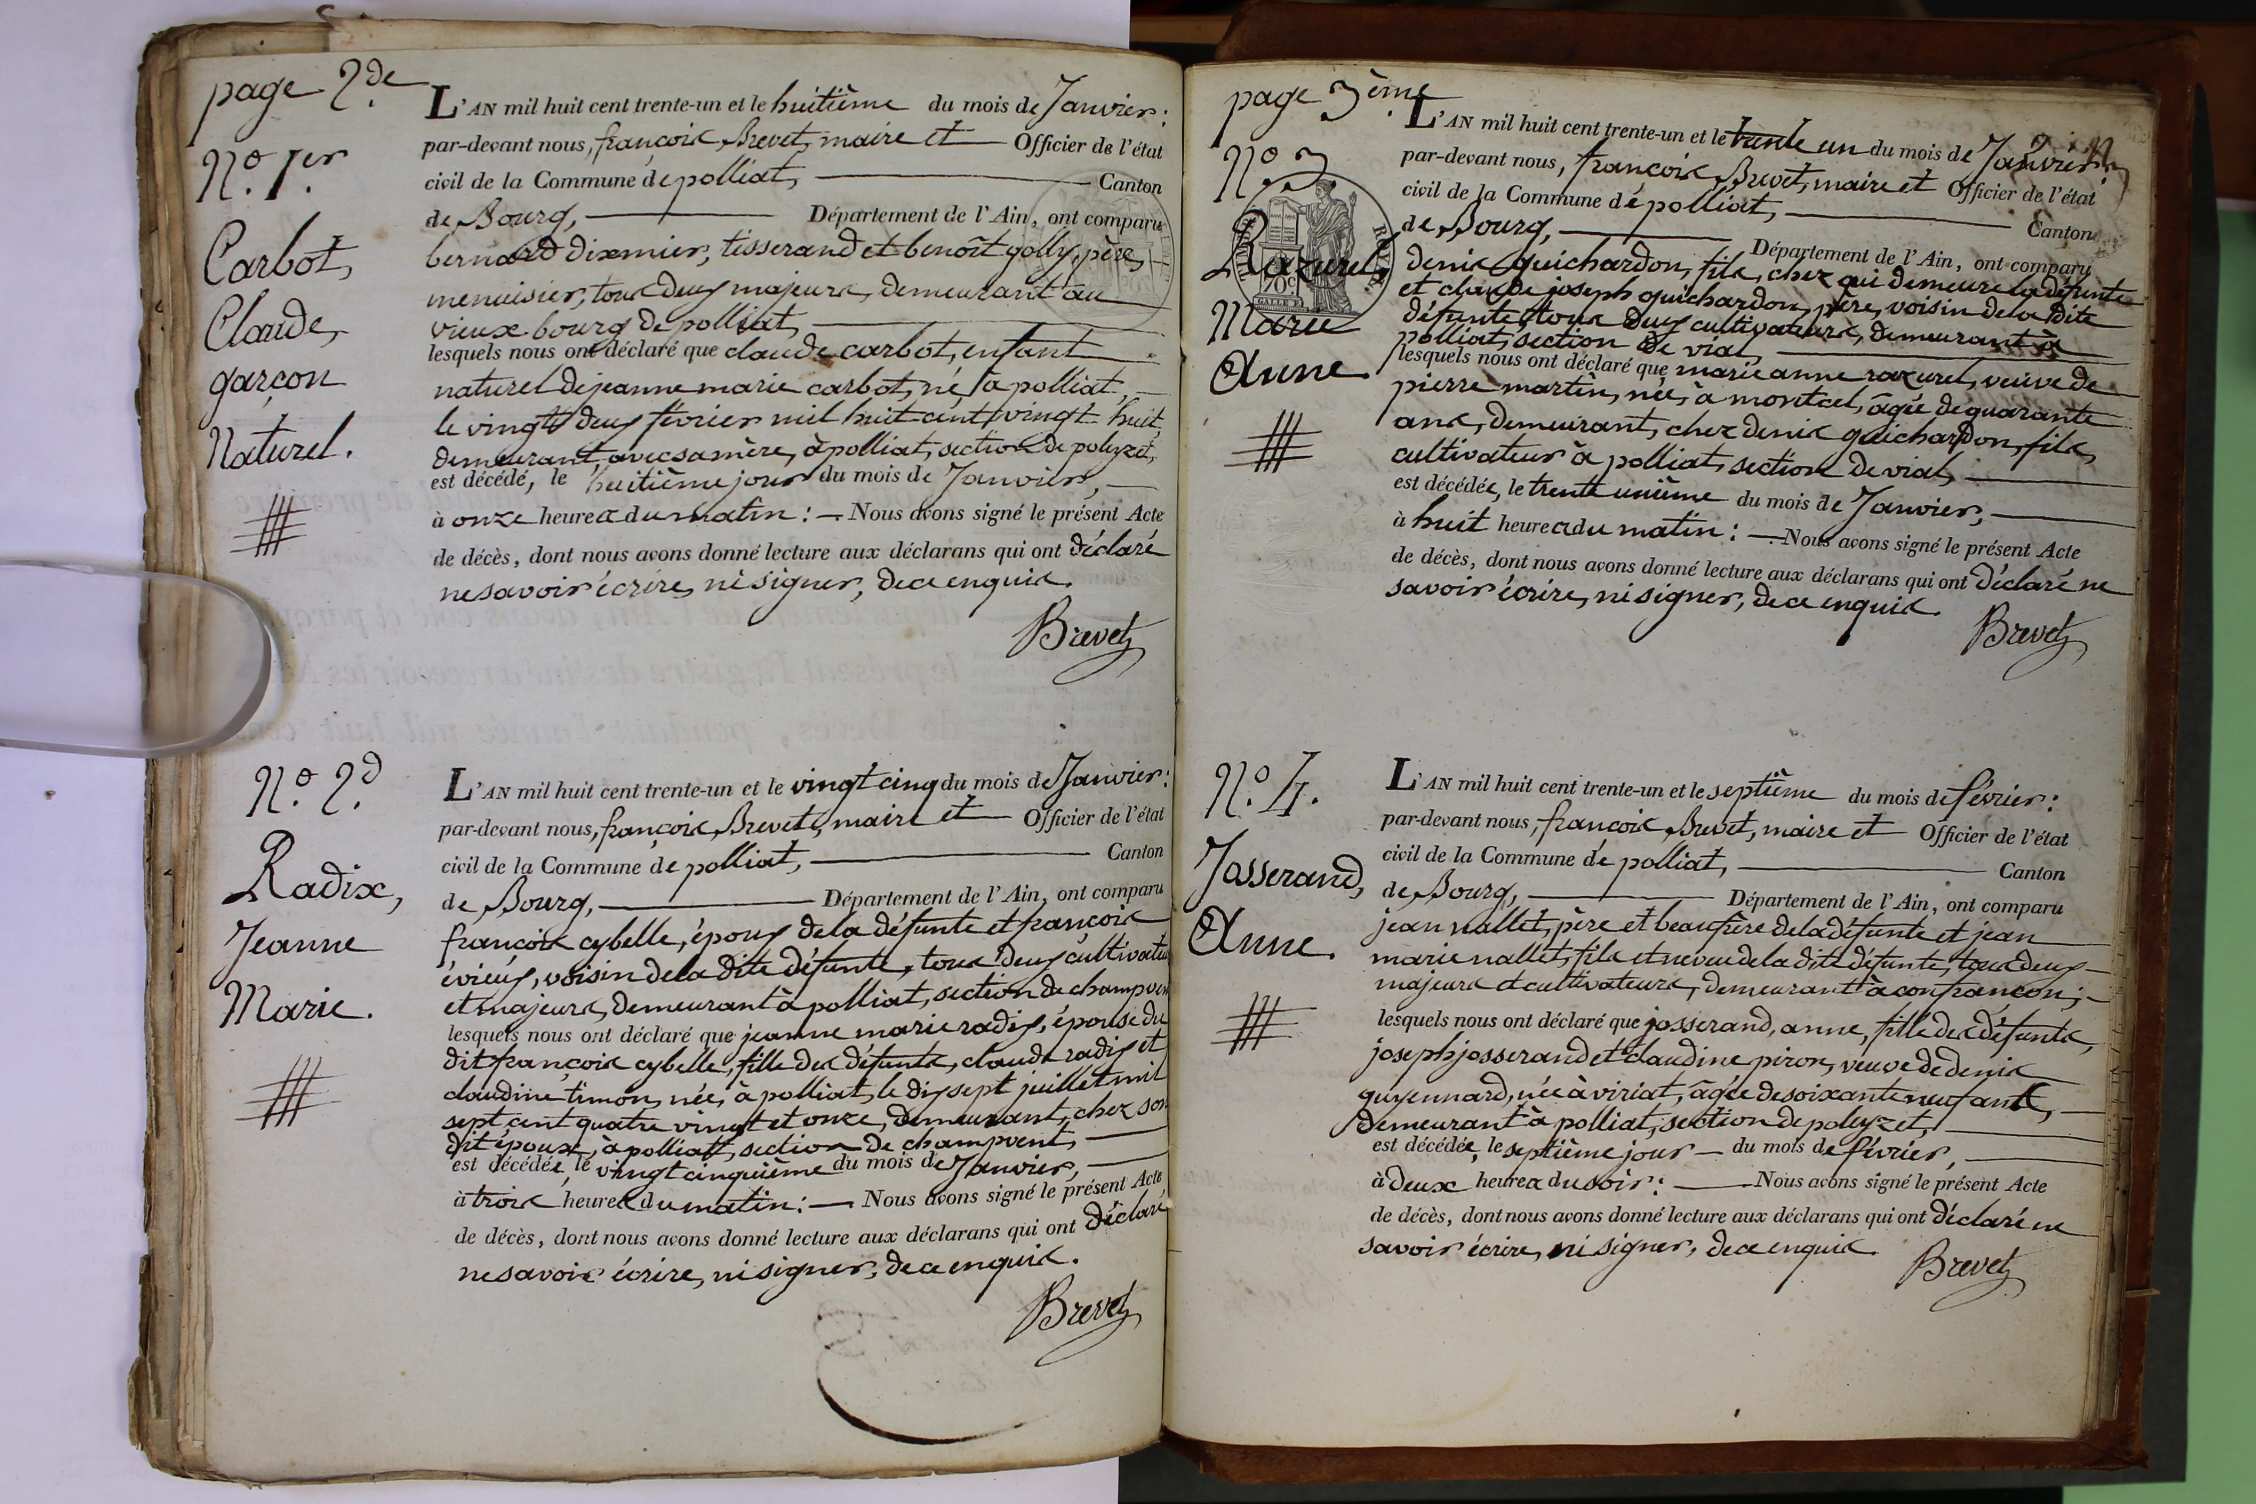 page 2de
N.º 1.er
Carbot,
Claude,
garçon
Naturel.
L'AN mil huit cent trente-un et le huitième du mois de Janvier:
par-devant nous, françois Brevet, maire et Officier de l'état
civil de la Commune de polliat, Canton
de Bourg, Département de l'Ain, ont comparu
bernard dixmier, tisserand et benoît golly, père,
menuisier, tous deux majeurs, demeurant au
vieux bourg de polliat,
lesquels nous ont déclaré que claude carbot, enfant
naturel de jeanne marie carbot, né, à polliat,
le vingt deux février mil huit cent vingt huit,
demeurant, avec sa mère, à polliat, section de polyzet,
est décédé, le huitième jour du mois de Janvier,
à onze heures du matin: Nous avons signé le présent Acte
de décès, dont nous avons donné lecture aux déclarans qui ont déclaré
ne savoir écrire, ni signer, de ce enquis.
Brevet
N.º 2.d
Radix,
Jeanne
Marie.
L'AN mil huit cent trente-un et le vingt cinq du mois de Janvier:
par-devant nous, françois Brevet, maire et Officier de l'état
civil de la Commune de polliat, Canton
de Bourg, Département de l'Ain, ont comparu
françois cybelle, époux de la défunte et françois
évieux, voisin de la dite défunte, tous deux cultivateu
et majeurs, demeurant à polliat, section de champven
lesquels nous ont déclaré que jeanne marie radix, épouse du
dit françois cybelle, fille des défunts, claude radix et
claudine timon, née, à polliat, le dix sept juillet mil
sept cent quatre vingt et onze, demeurant, chez son
dit époux, à polliat, section de champvent,
est décédée, le vingt cinquième du mois de Janvier,
à trois heures du matin: Nous avons signé le présent Acte
de décès, dont nous avons donné lecture aux déclarans qui ont déclaré
ne savoir écrire, ni signer, de ce enquis.
Brevet
page 3ème
N.º 3
Razurel,
Marie
Anne.
L'AN mil huit cent trente-un et le trente un du mois de Janvier:
par-devant nous, françois Brevet, maire et Officier de l'état
civil de la Commune de polliat, Canton
de Bourg, Département de l'Ain, ont comparu
denis guichardon, fils, chez qui demeure la défunte
et claude joseph guichardon, père, voisin de la dite
défunte, tous deux cultivateurs, demeurant à
polliat, section de vial,
lesquels nous ont déclaré que marie anne razurel, veuve de
pierre martin, née, à montcel, âgée de quarante
ans, demeurant, chez denis guichardon, fils,
cultivateur à polliat, section de vial,
est décédée, le trente unième du mois de Janvier,
à huit heures du matin: Nous avons signé le présent Acte
de décès, dont nous avons donné lecture aux déclarans qui ont déclaré ne
savoir écrire, ni signer, de ce enquis.
Brevet
N.º 4.
Josserand,
Anne.
L'AN mil huit cent trente-un et le septième du mois de février:
par-devant nous, françois Brevet, maire et Officier de l'état
civil de la Commune de polliat, Canton
de Bourg, Département de l'Ain, ont comparu
jean nallet, père et beaufrère de la défunte et jean
marie nallet, fils et neveu de la dite défunte, tous deux
majeurs et cultivateurs, demeurant à confrançon;
lesquels nous ont déclaré que josserand, anne, fille des défunts,
joseph josserand et claudine piron, veuve de denis
guyennard, née à viriat, âgée de soixante neuf ans,
demeurant à polliat, section de polyzet,
est décédée, le septième jour du mois de février,
à deux heures du soir: Nous avons signé le présent Acte
de décès, dont nous avons donné lecture aux déclarans qui ont déclaré ne
savoir écrire, ni signer, de ce enquis.
Brevet